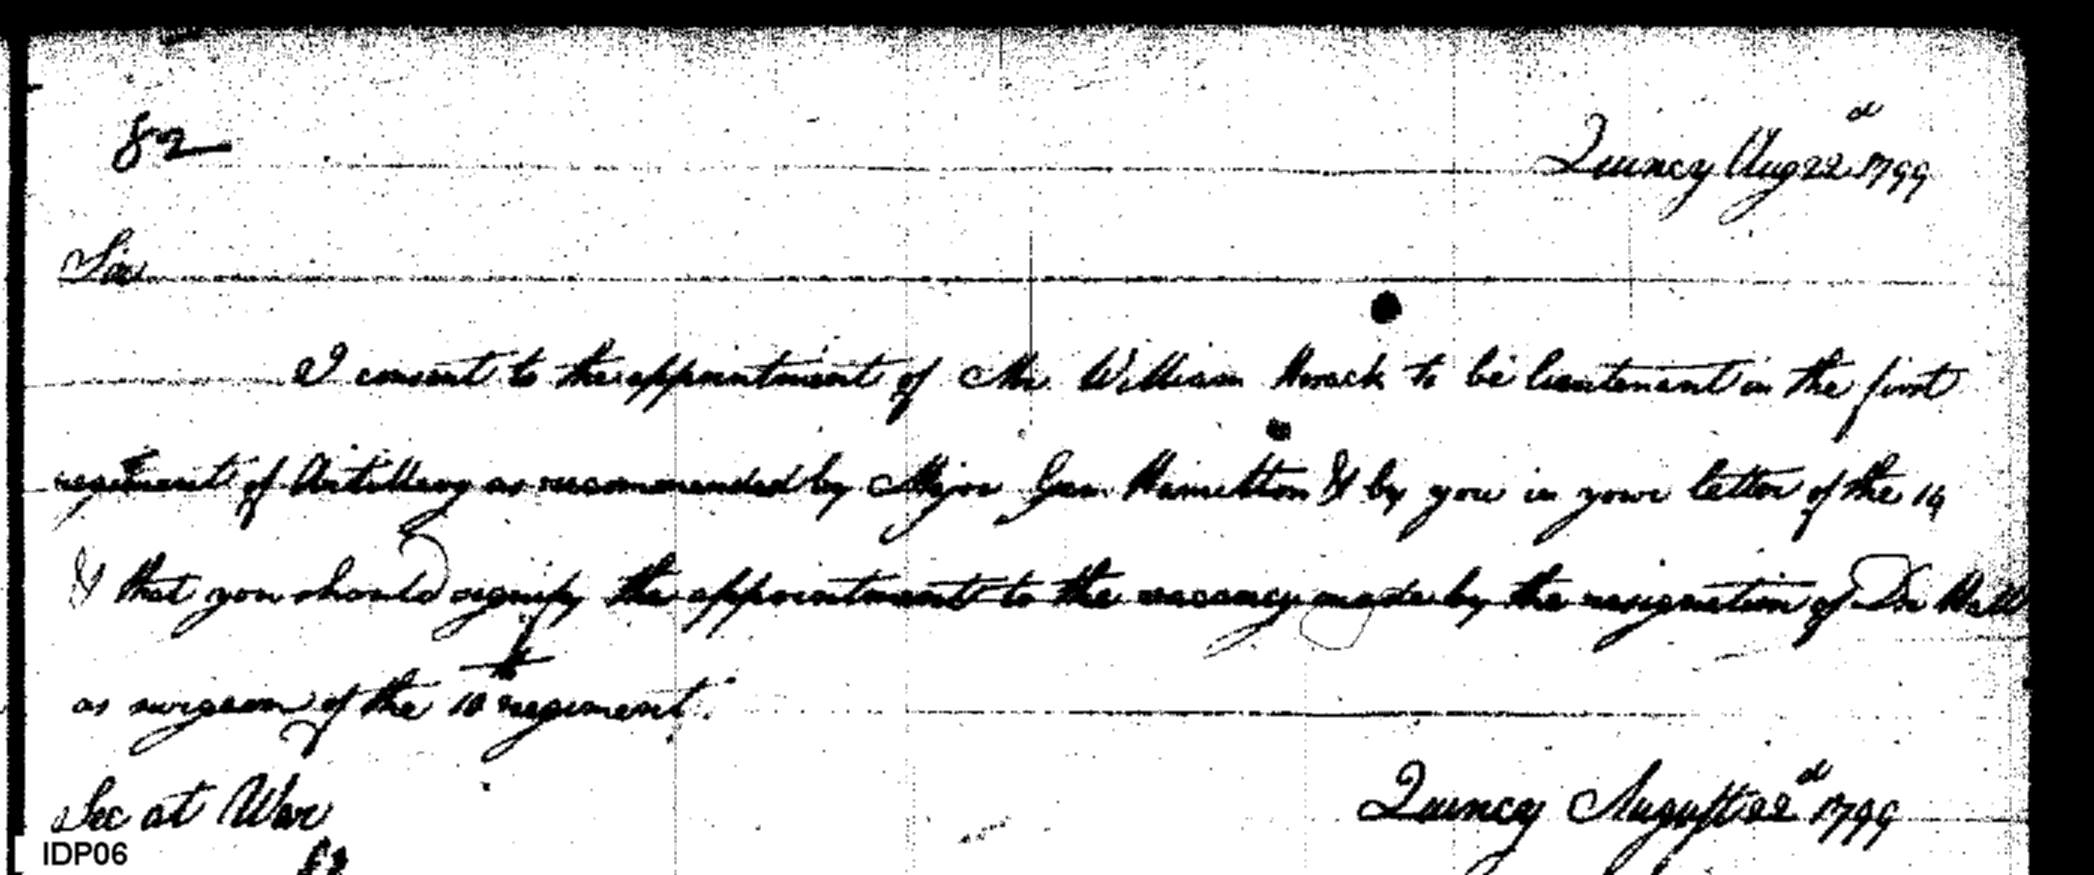 82
Quincy Aug 22d 1799
Sir
I consent to the appointment of Mr William to be lieutenant in the first
regiment of Artillery as recommended by Major Gen. Hamilton & by you in your letter of the 14
& that you should signify the appointment to the vacancy made by the resignation of Dr Hall
as surgeon of the 10th regiment.
Sec at War
Quincy August 22d 1799
IDP06